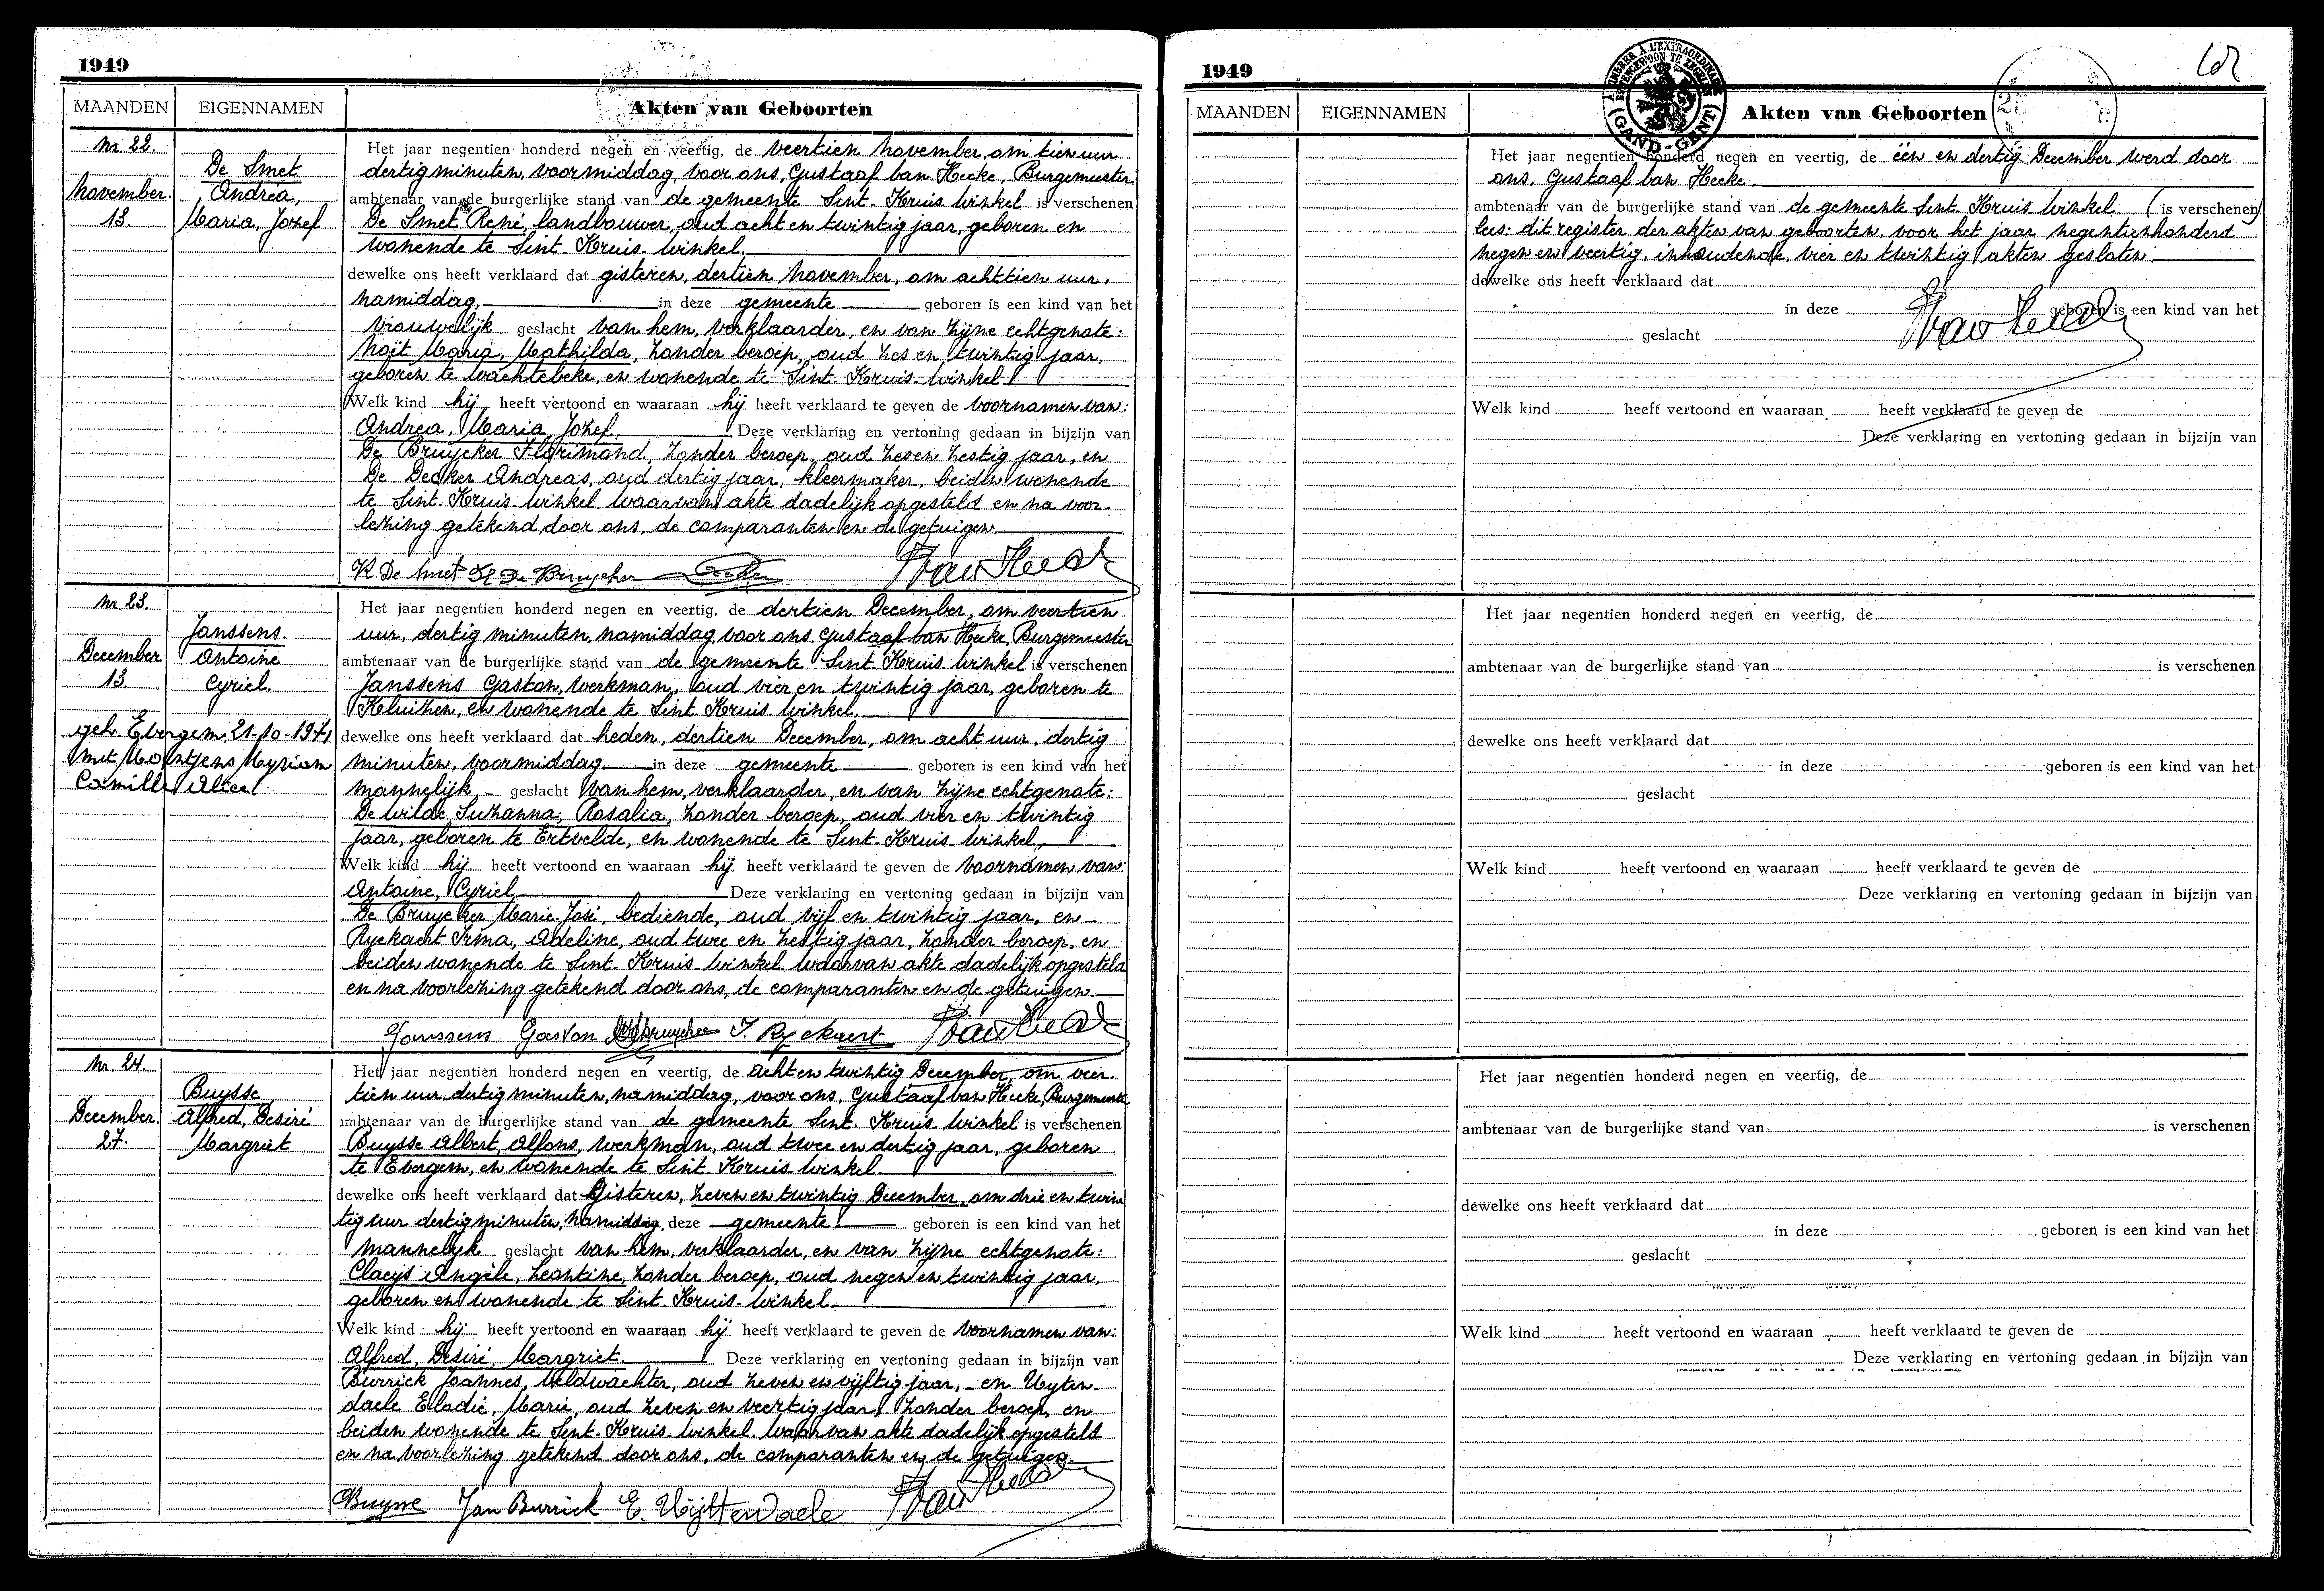 1949
MAANDEN EIGENNAMEN Akten van Geboorten
Nr. 22.
De Smet
November. Andrea,
13. Maria, Jozef
Het jaar negentien honderd negen en veertig, de veertien November, om tien uur
dertig minuten, voormiddag, voor ons, Gustaaf van Hecke, Burgemeester
ambtenaar van de burgerlijke stand van de gemeente Sint-Kruis-Winkel is verschenen
De Smet René, landbouwer, oud acht en twintig jaar, geboren en
wonende te Sint-Kruis-Winkel.
dewelke ons heeft verklaard dat gisteren, dertien November, om achttien uur.
namiddag, in deze gemeente geboren is een kind van het
vrouwelijk geslacht van hem, verklaarder, en van zijne echtgenote:
Noët Maria, Mathilda, zonder beroep, oud zes en twintig jaar,
geboren te Wachtebeke, en wonende te Sint-Kruis-Winkel
Welk kind hij heeft vertoond en waaraan hij heeft verklaard te geven de voornamen van:
Andrea, Maria, Jozef. Deze verklaring en vertoning gedaan in bijzijn van
De Bruycker Florimond, zonder beroep, oud zes en zestig jaar, en
De Decker Andreas, oud dertig jaar, kleermaker, beiden wonende
te Sint-Kruis-Winkel waarvan akte dadelijk opgesteld en na voor-
lezing getekend door ons, de comparanten en de getuigen
R De Smet Fl De Bruycker
Nr 23.
Janssens.
December Antoine
13. Cyriel.
geh. Evergem 21-10-1971
met Montjens Myriam
Camilla Alice
Het jaar negentien honderd negen en veertig, de dertien December, om veertien
uur, dertig minuten, namiddag voor ons Gustaaf van Hecke, Burgemeester
ambtenaar van de burgerlijke stand van de gemeente Sint-Kruis-Winkel is verschenen
Janssens Gaston, werkman, oud vier en twintig jaar, geboren te
Kluizen, en wonende te Sint-Kruis-Winkel.
dewelke ons heeft verklaard dat heden, dertien December, om acht uur, dertig
minuten, voormiddag in deze gemeente geboren is een kind van het
mannelijk geslacht van hem, verklaarder, en van zijne echtgenote:
De Wilde Suzanna, Rosalia, zonder beroep, oud vier en twintig
jaar, geboren te Ertvelde, en wonende te Sint-Kruis-Winkel.
Welk kind hij heeft vertoond en waaraan hij heeft verklaard te geven de voornamen van:
Antoine, Cyriel Deze verklaring en vertoning gedaan in bijzijn van
De Bruycker Marie-José, bediende, oud vijf en twintig jaar, en
Ryckaert Irma, Adeline, oud twee en zestig jaar, zonder beroep, en
beiden wonende te Sint-Kruis-Winkel waarvan akte dadelijk opgesteld
en na voorlezing getekend door ons, de comparanten en de getuigen.
Janssens Gaston I. Ryckaert
Nr. 24.
Buysse
December. Alfred, Desiré
27. Margriet
Het jaar negentien honderd negen en veertig, de acht en twintig December, om veer-
tien uur dertig minuten, namiddag, voor ons, Gustaaf van Hecke, Burgemeester
ambtenaar van de burgerlijke stand van de gemeente Sint-Kruis-Winkel is verschenen
Buysse Albert, Alfons, werkman, oud twee en dertig jaar, geboren
te Evergem, en wonende te Sint-Kruis-Winkel
dewelke ons heeft verklaard dat gisteren, zeven en twintig December, om drie en twin
tig uur dertig minuten, namiddag, deze gemeente geboren is een kind van het
mannelijk geslacht van hem, verklaarder, en van zijne echtgenote:
Claeys Angèle, Leontine, zonder beroep, oud negen en twintig jaar,
geboren en wonende te Sint-Kruis-Winkel.
Welk kind hij heeft vertoond en waaraan hij heeft verklaard te geven de voornamen van:
Alfred, Desiré, Margriet. Deze verklaring en vertoning gedaan in bijzijn van
Burrick Joannes, Veldwachter, oud zeven en vijftig jaar, en Uyten-
daele Elodie, Marie, oud zeven en veertig jaar, zonder beroep, en
beiden wonende te Sint-Kruis-Winkel waarvan akte dadelijk opgesteld
en na voorlezing getekend door ons, de comparanten en de getuigen.
Buysse Jan Burrick E. Uijttendaele
1949
MAANDEN EIGENNAMEN Akten van Geboorten
GAND-GENT
Het jaar negentien honderd negen en veertig, de één en dertig December werd door
ons, Gustaaf van Hecke
ambtenaar van de burgerlijke stand van de gemeente Sint-Kruis-Winkel (is verschenen)
lees: dit register der akten van geboorten, voor het jaar negentienhonderd
negen en veertig, inhoudende, vier en twintig akten gesloten
dewelke ons heeft verklaard dat
in deze geboren is een kind van het
geslacht
Welk kind heeft vertoond en waaraan heeft verklaard te geven de
Deze verklaring en vertoning gedaan in bijzijn van
Het jaar negentien honderd negen en veertig, de
ambtenaar van de burgerlijke stand van is verschenen
dewelke ons heeft verklaard dat
in deze geboren is een kind van het
geslacht
Welk kind heeft vertoond en waaraan heeft verklaard te geven de
Deze verklaring en vertoning gedaan in bijzijn van
Het jaar negentien honderd negen en veertig, de
ambtenaar van de burgerlijke stand van is verschenen
dewelke ons heeft verklaard dat
in deze geboren is een kind van het
geslacht
Welk kind heeft vertoond en waaraan heeft verklaard te geven de
Deze verklaring en vertoning gedaan in bijzijn van